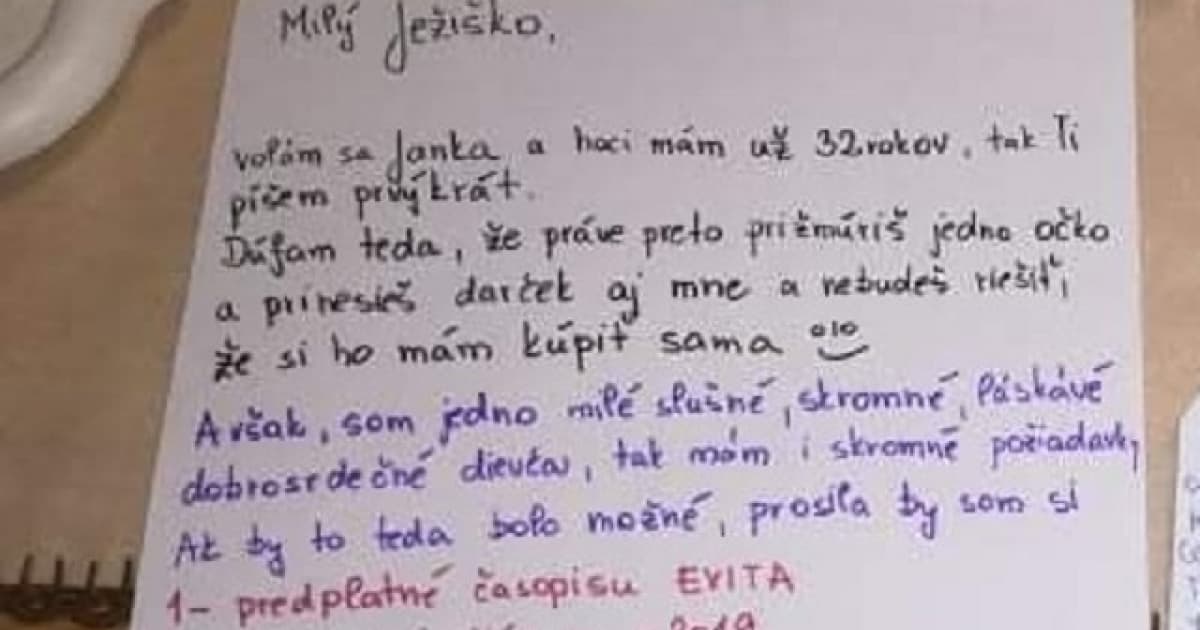 Milý Ježiško,
volám sa Janka a hoci mám už 32 rokov, tak Ti
píšem prvýkrát.
Dúfam teda, že práve preto prižmúriš jedno očko
a prinesieš darček aj mne a nebudeš riešiť,
že si ho mám kúpiť sama
Avšak, som jedno milé slušné, skromné, láskavé
dobrosrdečné dievča, tak mám i skromné požiadavky
Ak by to teda bolo možné, prosila by som si
1- predplatné časopisu EVITA
2019